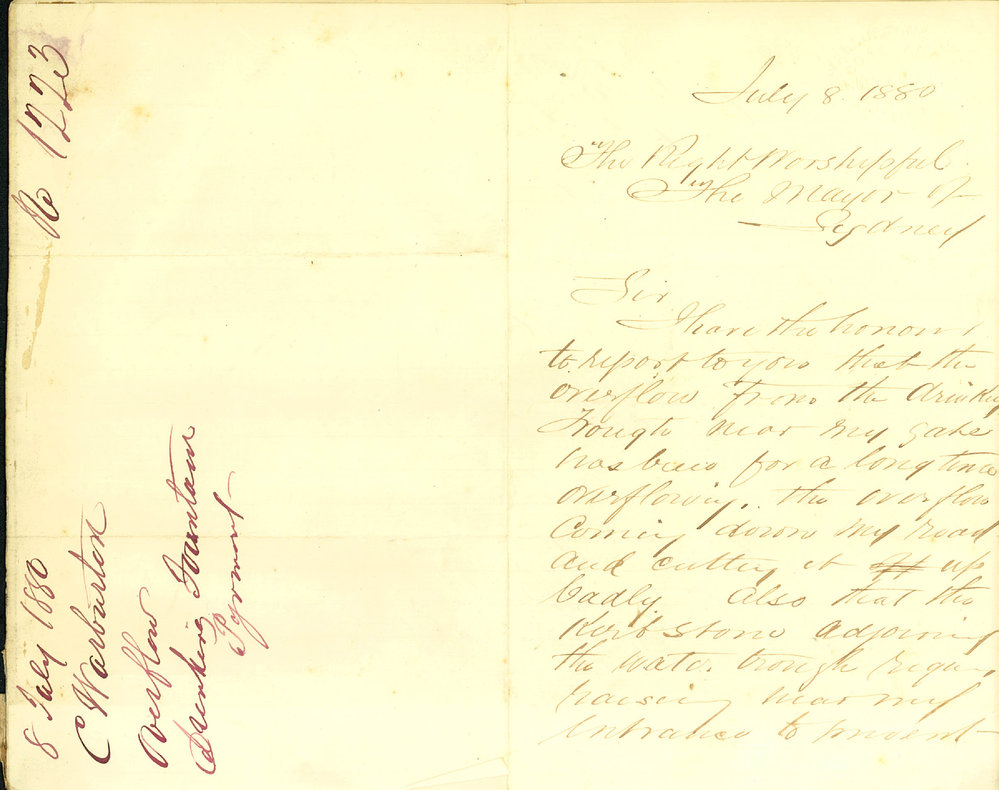 No 1223
8 July 1880
C Warburton
Overflow
Drinking Fountain
Pyrmont
July 8. 1880
The Right Worshipful
The Mayor of
Sydney
Sir
I have the honour
to report to you that the
overflow from the drinking
Trough near my gate
has been for a long time
overflowing. the overflow
coming down my road
and cutting it up
badly Also that the
Kerbstone adjoining
the water trough
raising near my
entrance to prevent